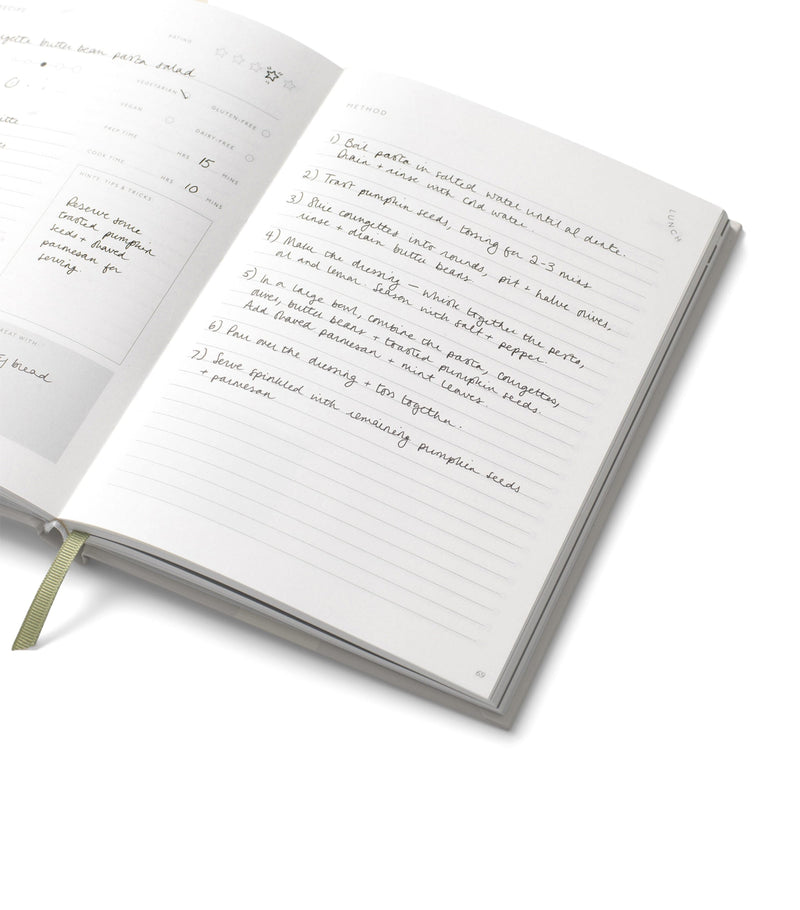 RECIPE
courgette butter bean pasta salad
RATING
VEGETARIAN
GLUTEN-FREE
VEGAN
DAIRY-FREE
PREP TIME
HRS 15 MINS
COOK TIME
HRS 10 MINS
HINTS, TIPS & TRICKS
Reserve some
toasted pumpkin
seeds + shaved
parmesan for
serving.
EAT WITH
bread
METHOD
1) Boil pasta in salted water until al dente.
Drain + rinse with cold water.
2) Toast pumpkin seeds, tossing for 2-3 mins
3) Slice courgettes into rounds, pit + halve olives,
rinse + drain butter beans
4) Make the dressing – whisk together the pesto,
oil and lemon. Season with salt + pepper.
5) In a large bowl, combine the pasta, courgettes,
olives, butter beans + toasted pumpkin seeds.
Add shaved parmesan + mint leaves.
6) Pour over the dressing + toss together.
7) Serve sprinkled with remaining pumpkin seeds
+ parmesan
LUNCH
69